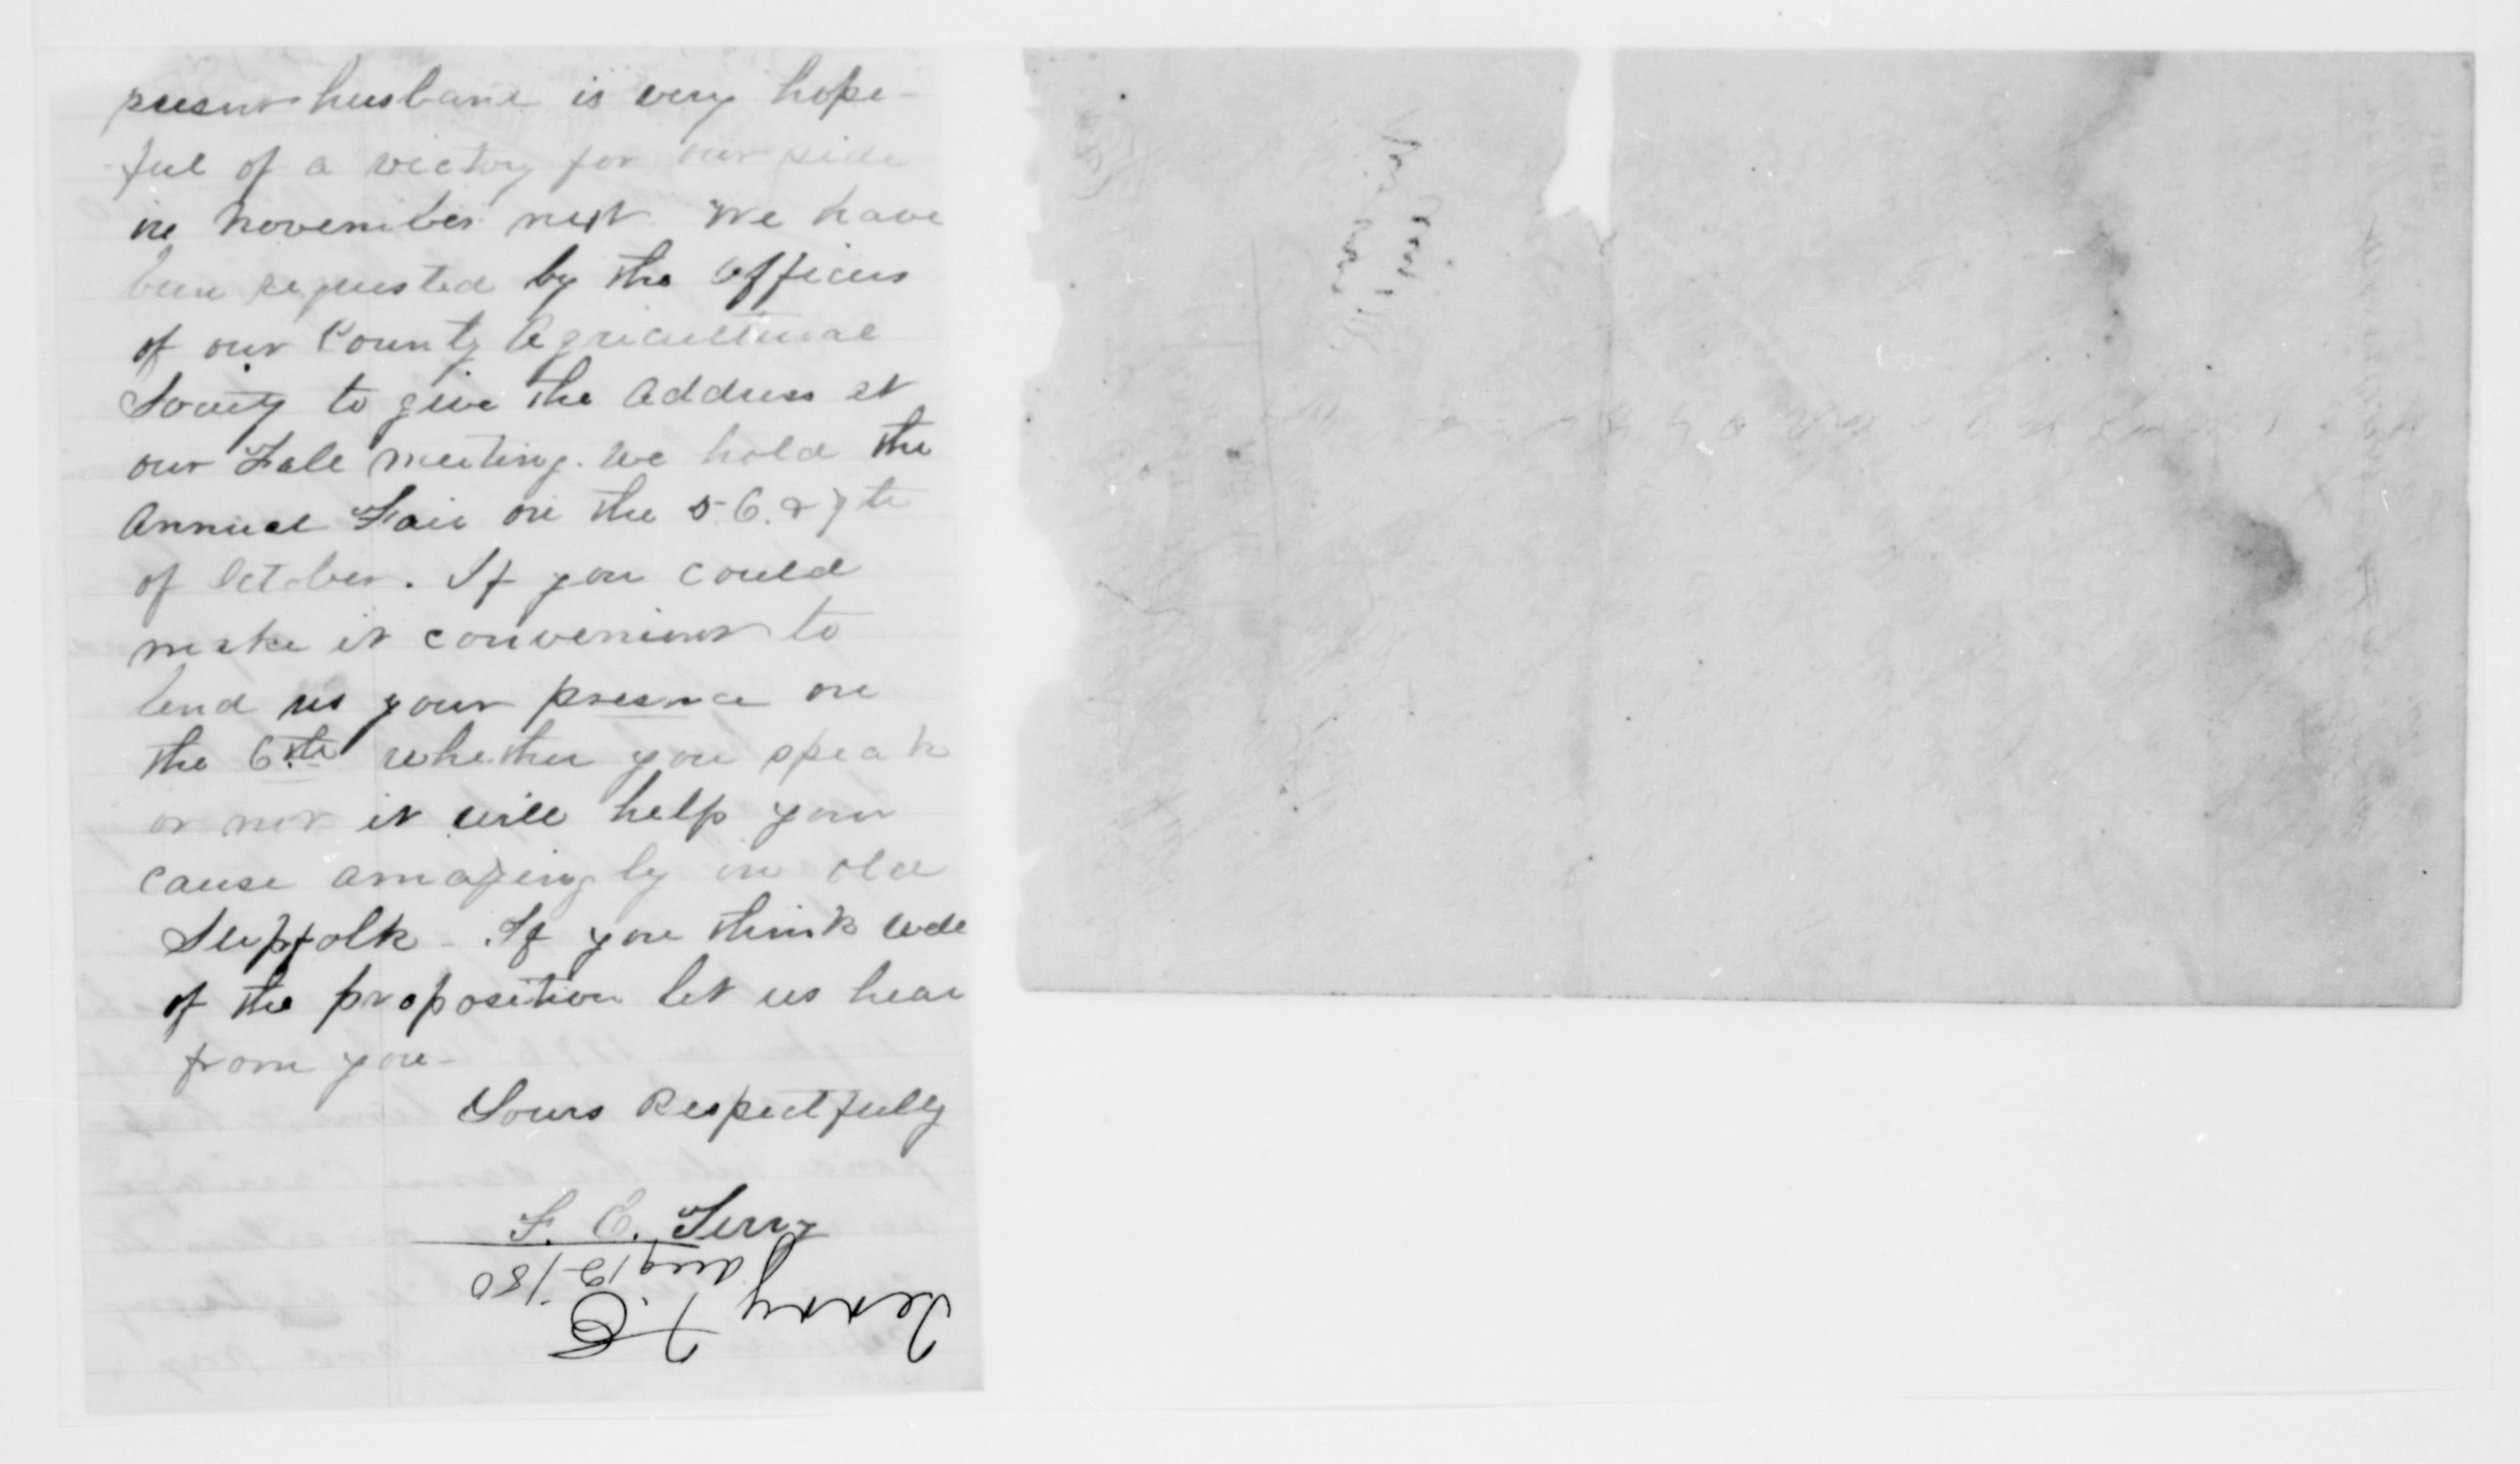 present husband is very hope-
ful of a victory for our side
in November next We have
been requested by the officers
of our County Agricultural
Society to give the Address at
our Fall meeting. We hold the
Annual Fair on the 5. 6. & 7th
of October. If you could
make it convenient to
lend us your presence on
the 6th whether you speak
or not it will help your
cause amazingly in old
Suffolk - If you think well
of the proposition let us hear
from you -
Yours Respectfully
F. E. Terry
Terry F. E
Aug 12/80